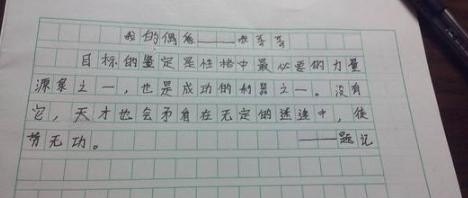 我的偶像——
目标的坚定是性格中最必要的力量
源泉之一,也是成功的利器之一。没有
它,天才也会矛盾在无定的迷途中,徒
劳无功。
——题记